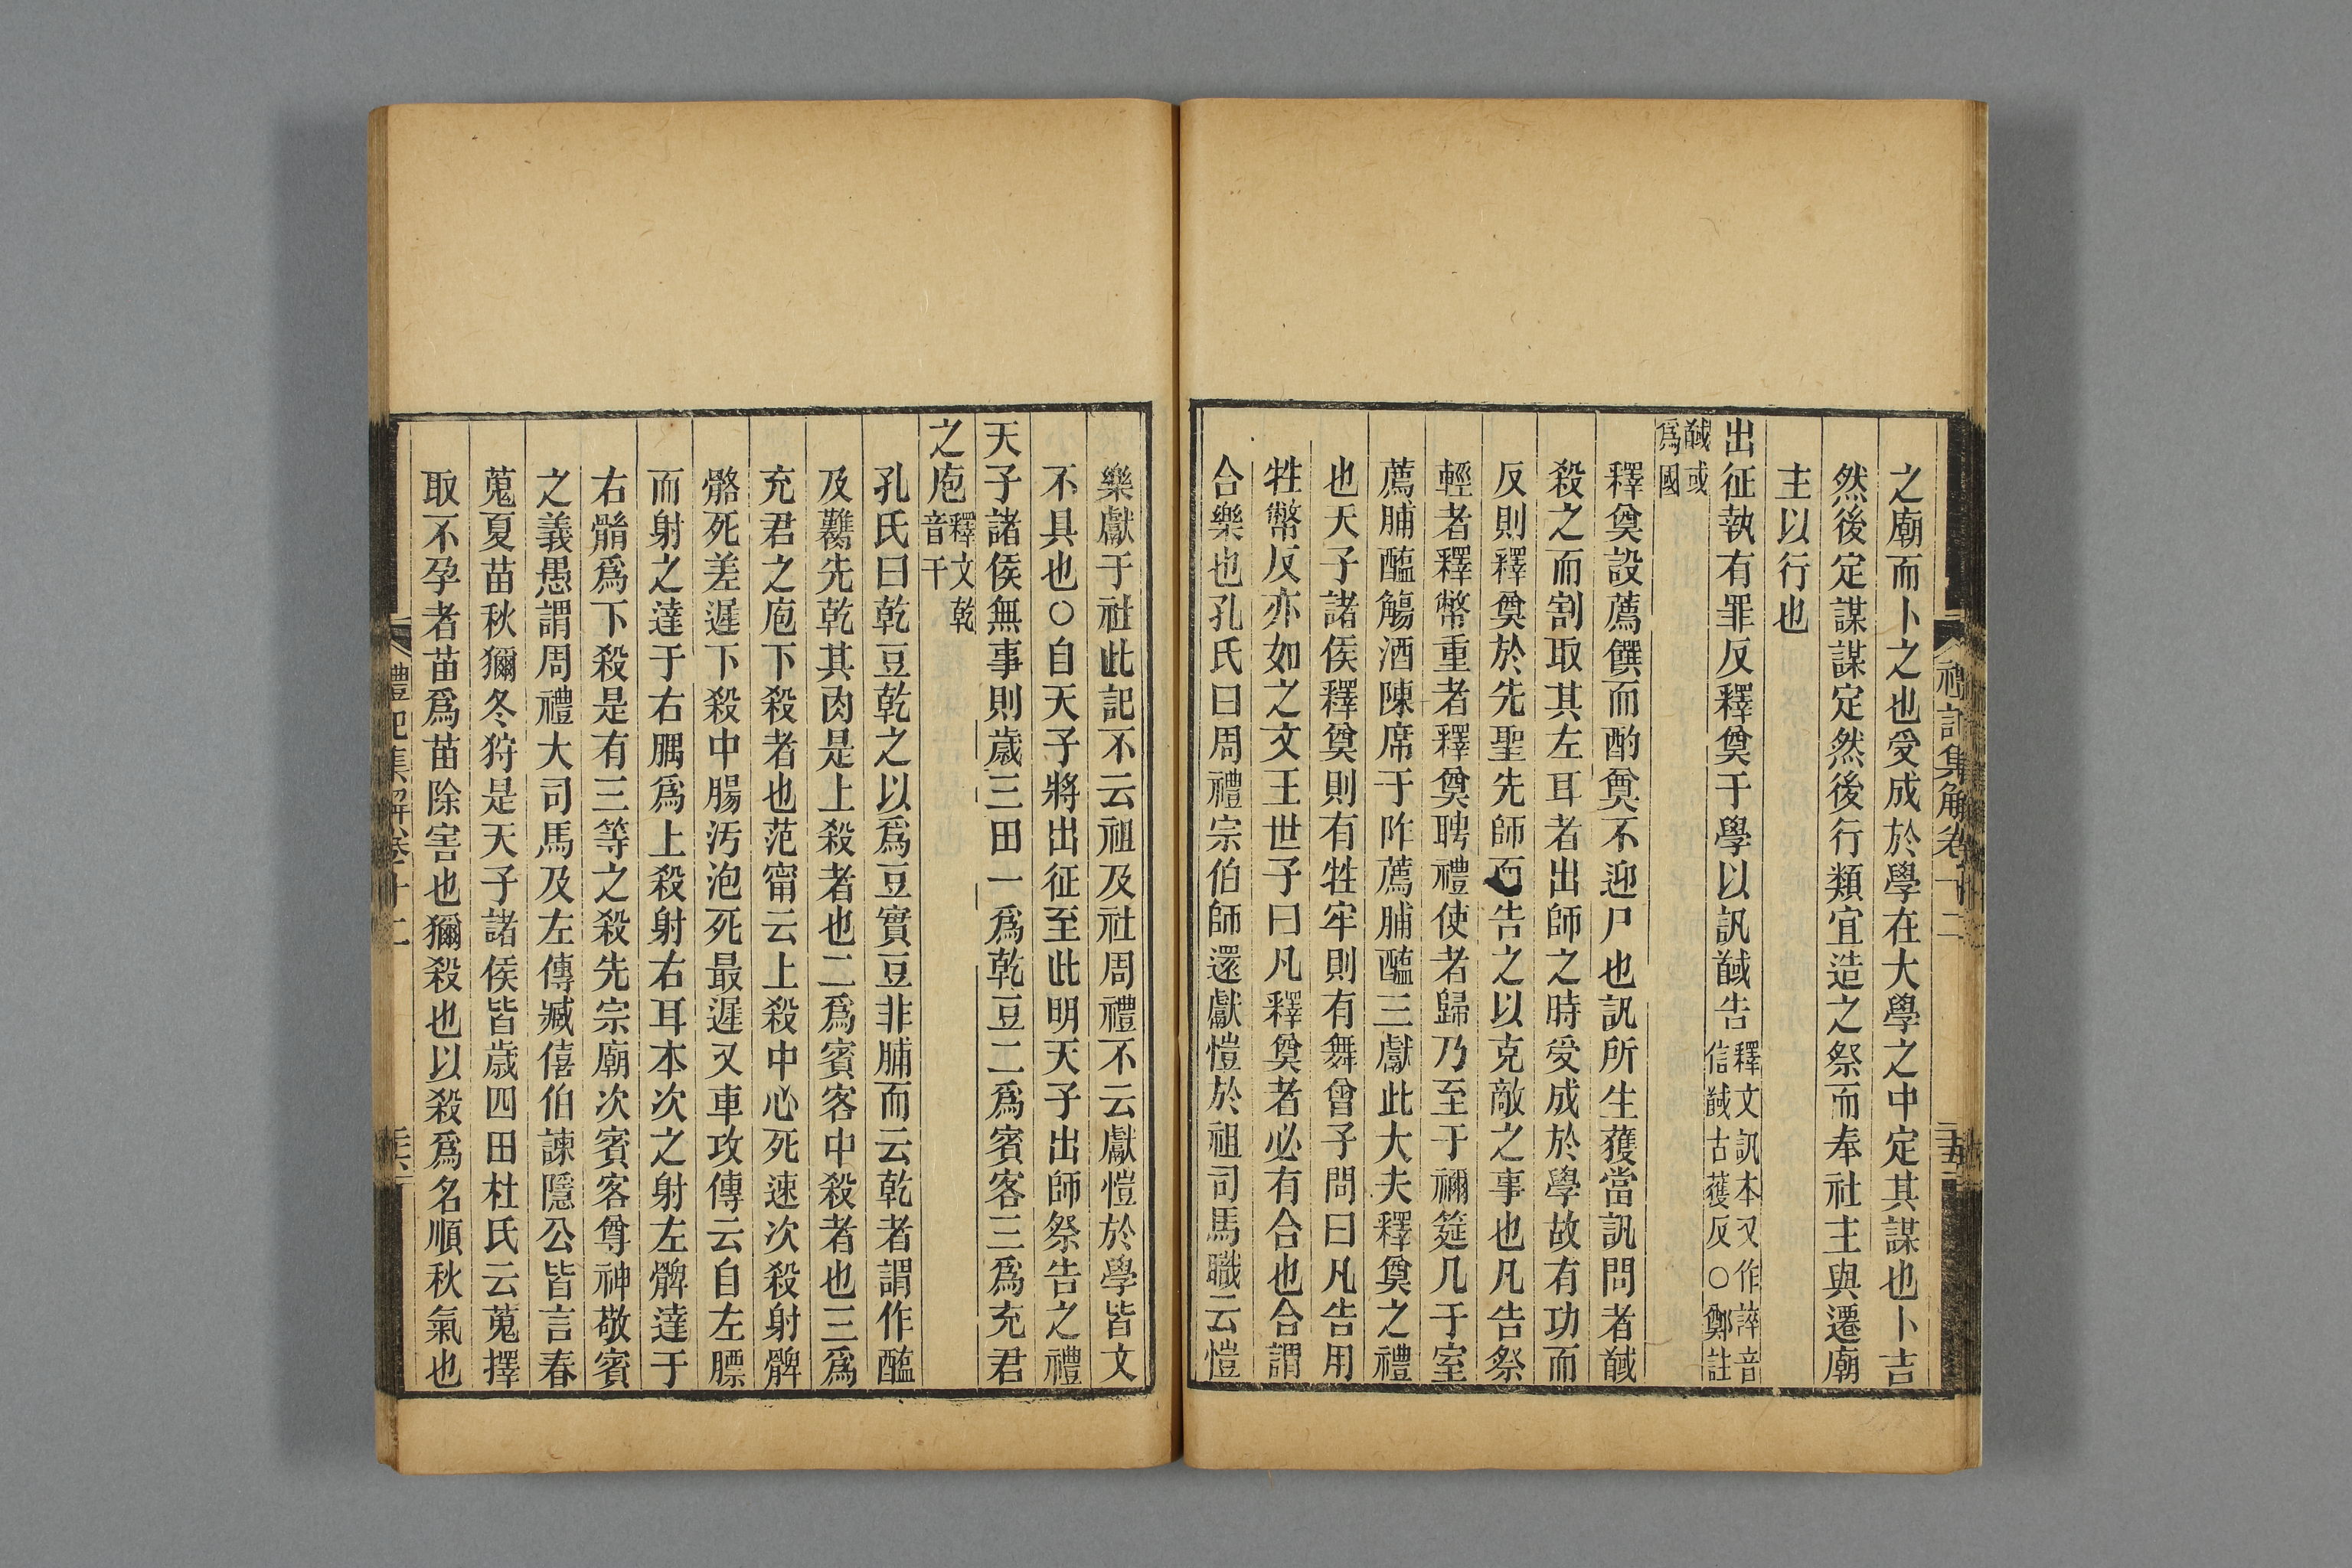 之廟而卜之也受成於學在大學之中定其謀也卜吉
然後定謀謀定然後行類宜造之祭而奉社主與遷廟
主以行也
出征執有罪反釋奠于學以訊馘告釋文訊本又作誶音信馘古獲反○鄭註
馘或爲國
釋奠設薦饌而酌奠不迎尸也訊所生獲當訊問者馘
殺之而割取其左耳者出師之時受成於學故有功而
反則釋奠於先聖先師而告之以克敵之事也凡告祭
輕者釋幣重者釋奠聘禮使者歸乃至于禰筵几于室
薦脯醢觴酒陳席于阼薦脯醢三獻此大夫釋奠之禮
也天子諸侯釋奠則有牲牢則有舞曾子問曰凡告用
牲幣反亦如之文王世子曰凡釋奠者必有合也合謂
合樂也孔氏曰周禮宗伯師還獻愷於祖司馬職云愷
樂獻于社此記不云祖及社周禮不云獻愷於學皆文
不具也○自天子將出征至此明天子出師祭告之禮
天子諸侯無事則歲三田一爲乾豆二爲賓客三爲充君
之庖釋文乾音干
孔氏曰乾豆乾之以爲豆實豆非脯而云乾者謂作醢
及臡先乾其肉是上殺者也二爲賓客中殺者也三爲
充君之庖下殺者也范甯云上殺中心死速次殺射髀
骼死差遲下殺中腸汚泡死最遲又車攻傳云自左膘
而射之達于右腢爲上殺射右耳本次之射左髀達于
右䯚爲下殺是有三等之殺先宗廟次賓客尊神敬賓
之義愚謂周禮大司馬及左傳臧僖伯諫隱公皆言春
蒐夏苗秋獮冬狩是天子諸侯皆歲四田杜氏云蒐擇
取不孕者苗爲苗除害也獮殺也以殺爲名順秋氣也
禮記集解卷十二